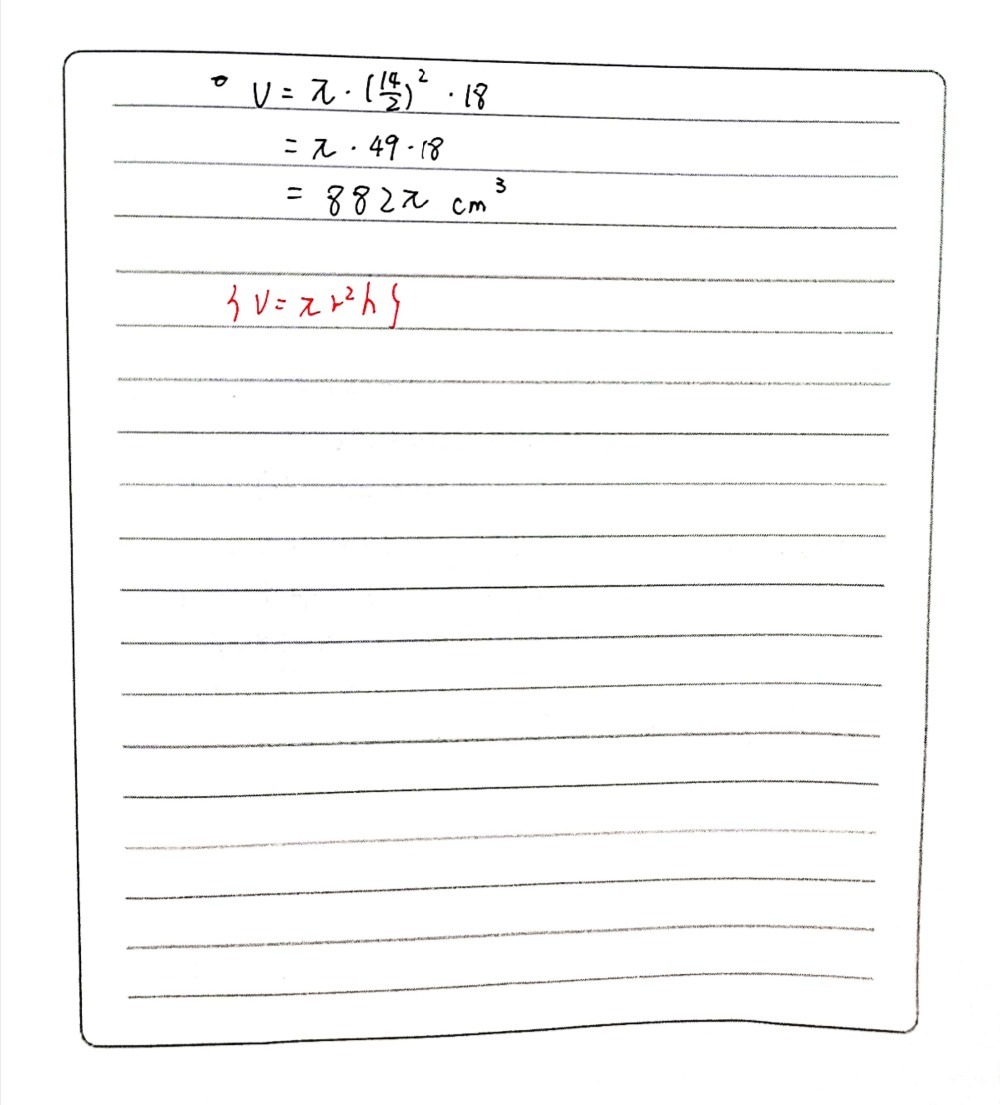 ° V = π · (14/2)² · 18
= π · 49 · 18
= 882π cm³
{ V = πr²h }